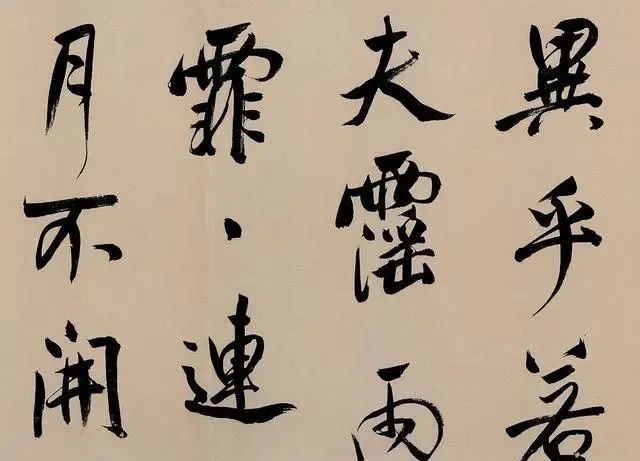 異乎若
夫霪雨
霏々連
月不開